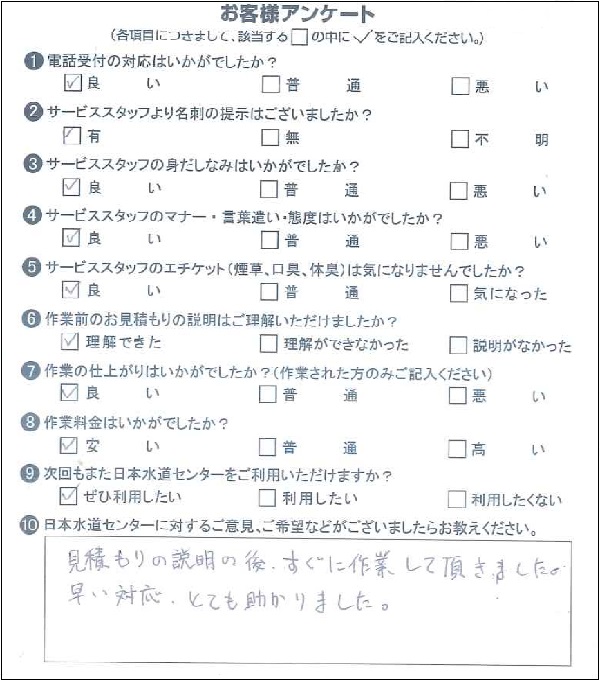 お客様アンケート
(各項目につきまして、該当する□の中に✓をご記入ください。)
❶電話受付の対応はいかがでしたか?
☑良い □普通 □悪い
❷サービススタッフより名刺の提示はございましたか?
☑有 □無 □不明
❸サービススタッフの身だしなみはいかがでしたか?
☑良い □普通 □悪い
❹サービススタッフのマナー・言葉遣い・態度はいかがでしたか?
☑良い □普通 □悪い
❺サービススタッフのエチケット(煙草、口臭、体臭)は気になりませんでしたか?
☑良い □普通 □気になった
❻作業前のお見積もりの説明はご理解いただけましたか?
☑理解できた □理解ができなかった □説明がなかった
❼作業の仕上がりはいかがでしたか?(作業された方のみご記入ください)
☑良い □普通 □悪い
❽作業料金はいかがでしたか?
☑安い □普通 □高い
❾次回もまた日本水道センターをご利用いただけますか?
☑ぜひ利用したい □利用したい □利用したくない
❿日本水道センターに対するご意見、ご希望などがございましたらお教えください。
見積もりの説明の後、すぐに作業して頂きました。
早い対応、とても助かりました。